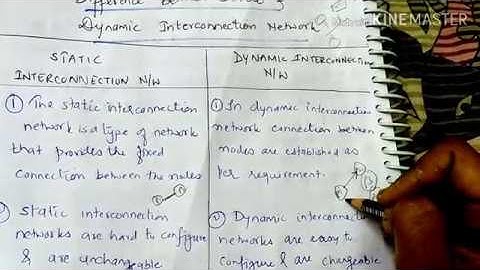 Difference between Static &
Dynamic Interconnection Network
KINEMASTER
STATIC
INTERCONNECTION N/W
① The static interconnection
network is a type of network
that provides the fixed
connection between the nodes
② Static interconnection
networks are hard to configure
& are unchangeable
DYNAMIC INTERCONNECTION
N/W
① In dynamic interconnection
network connection between
nodes are established as
per requirement.
② Dynamic interconnec
networks are easy to
configure & are changeable